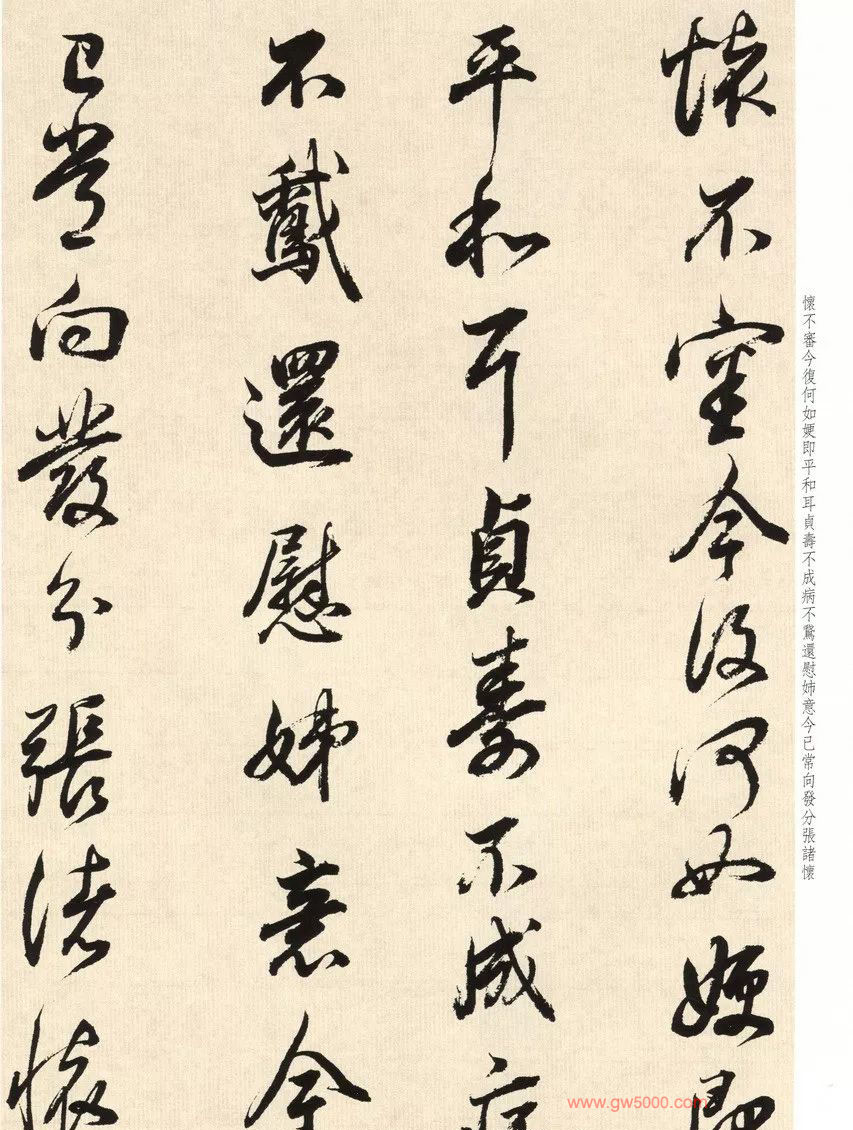 懷不審今復何如㛐即
平和耳貞壽不成病
不鵞還慰姊意今
已常向發分張諸懷
懷不審今復何如㛐即平和耳貞壽不成病不鵞還慰姊意今已常向發分張諸懷
www.gw5000.com